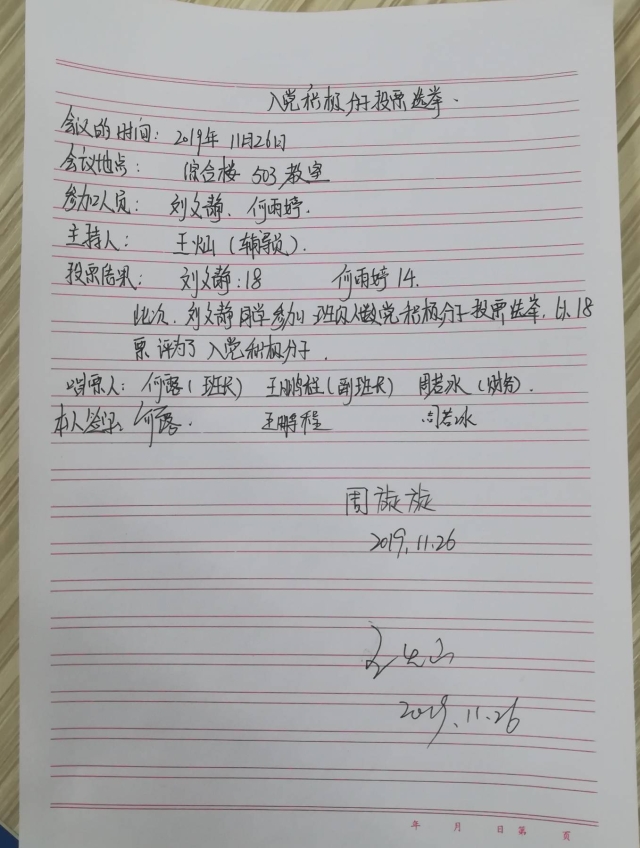 入党积极分子投票选举.
会议的时间: 2019年 11月26日
会议地点: 综合楼 503 教室
参加人员: 刘文静、何雨婷.
主持人: 王灿(辅导员).
投票结果: 刘文静:18 何雨婷 14.
此次、刘文静同学参加 班内做党积极分子投票选举,以18
票 评为了 入党积极分子.
唱票人: 何露(班长) 王鹏程(副班长) 周若冰(财务).
本人签字: 何露. 王鹏程 周若冰
周旋旋
2019.11.26
2019.11.26
年 月 日第 页